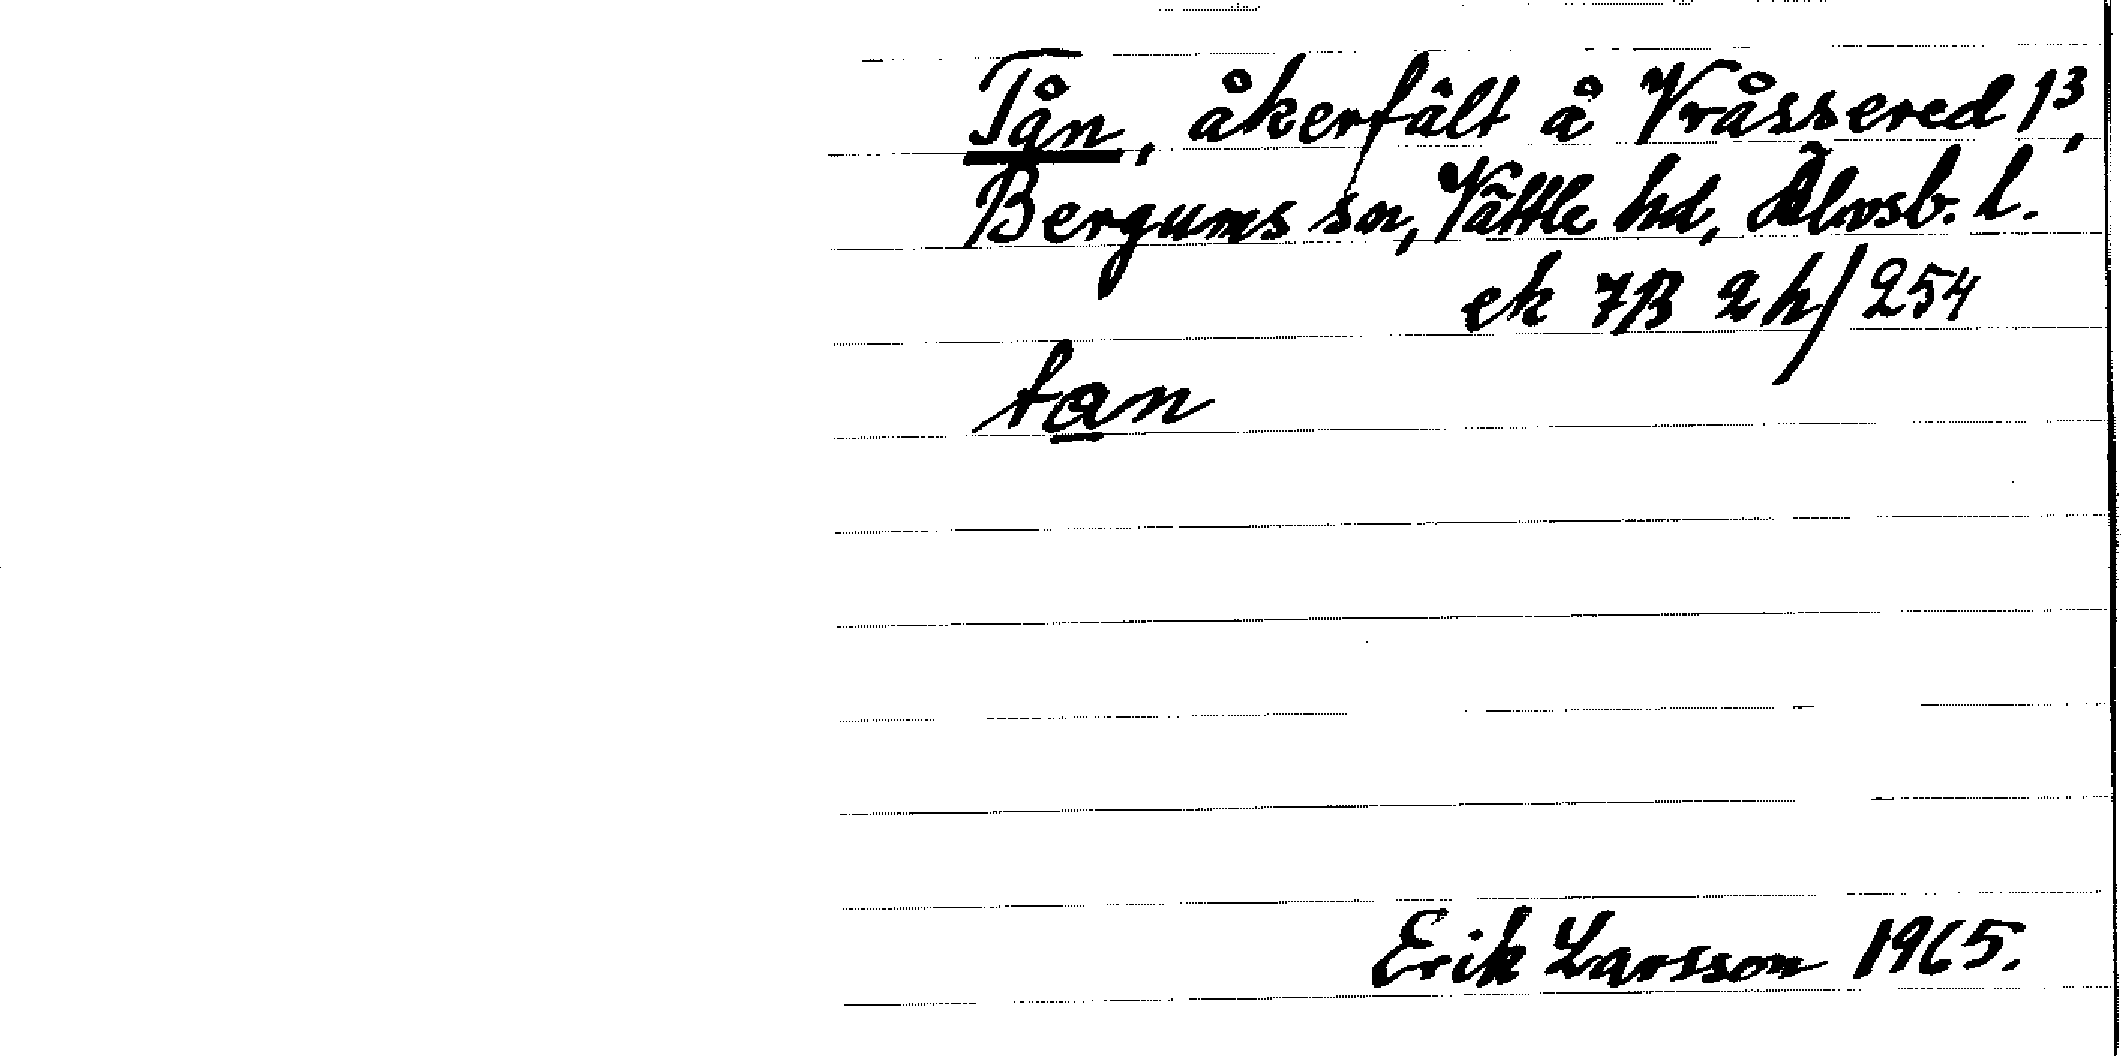 Tån, åkerfält å Vråssered 1³,
Bergums sn, Vättle hd, Älvsb. l.
ek 7B 2h/254
tan
Erik Larsson 1965.